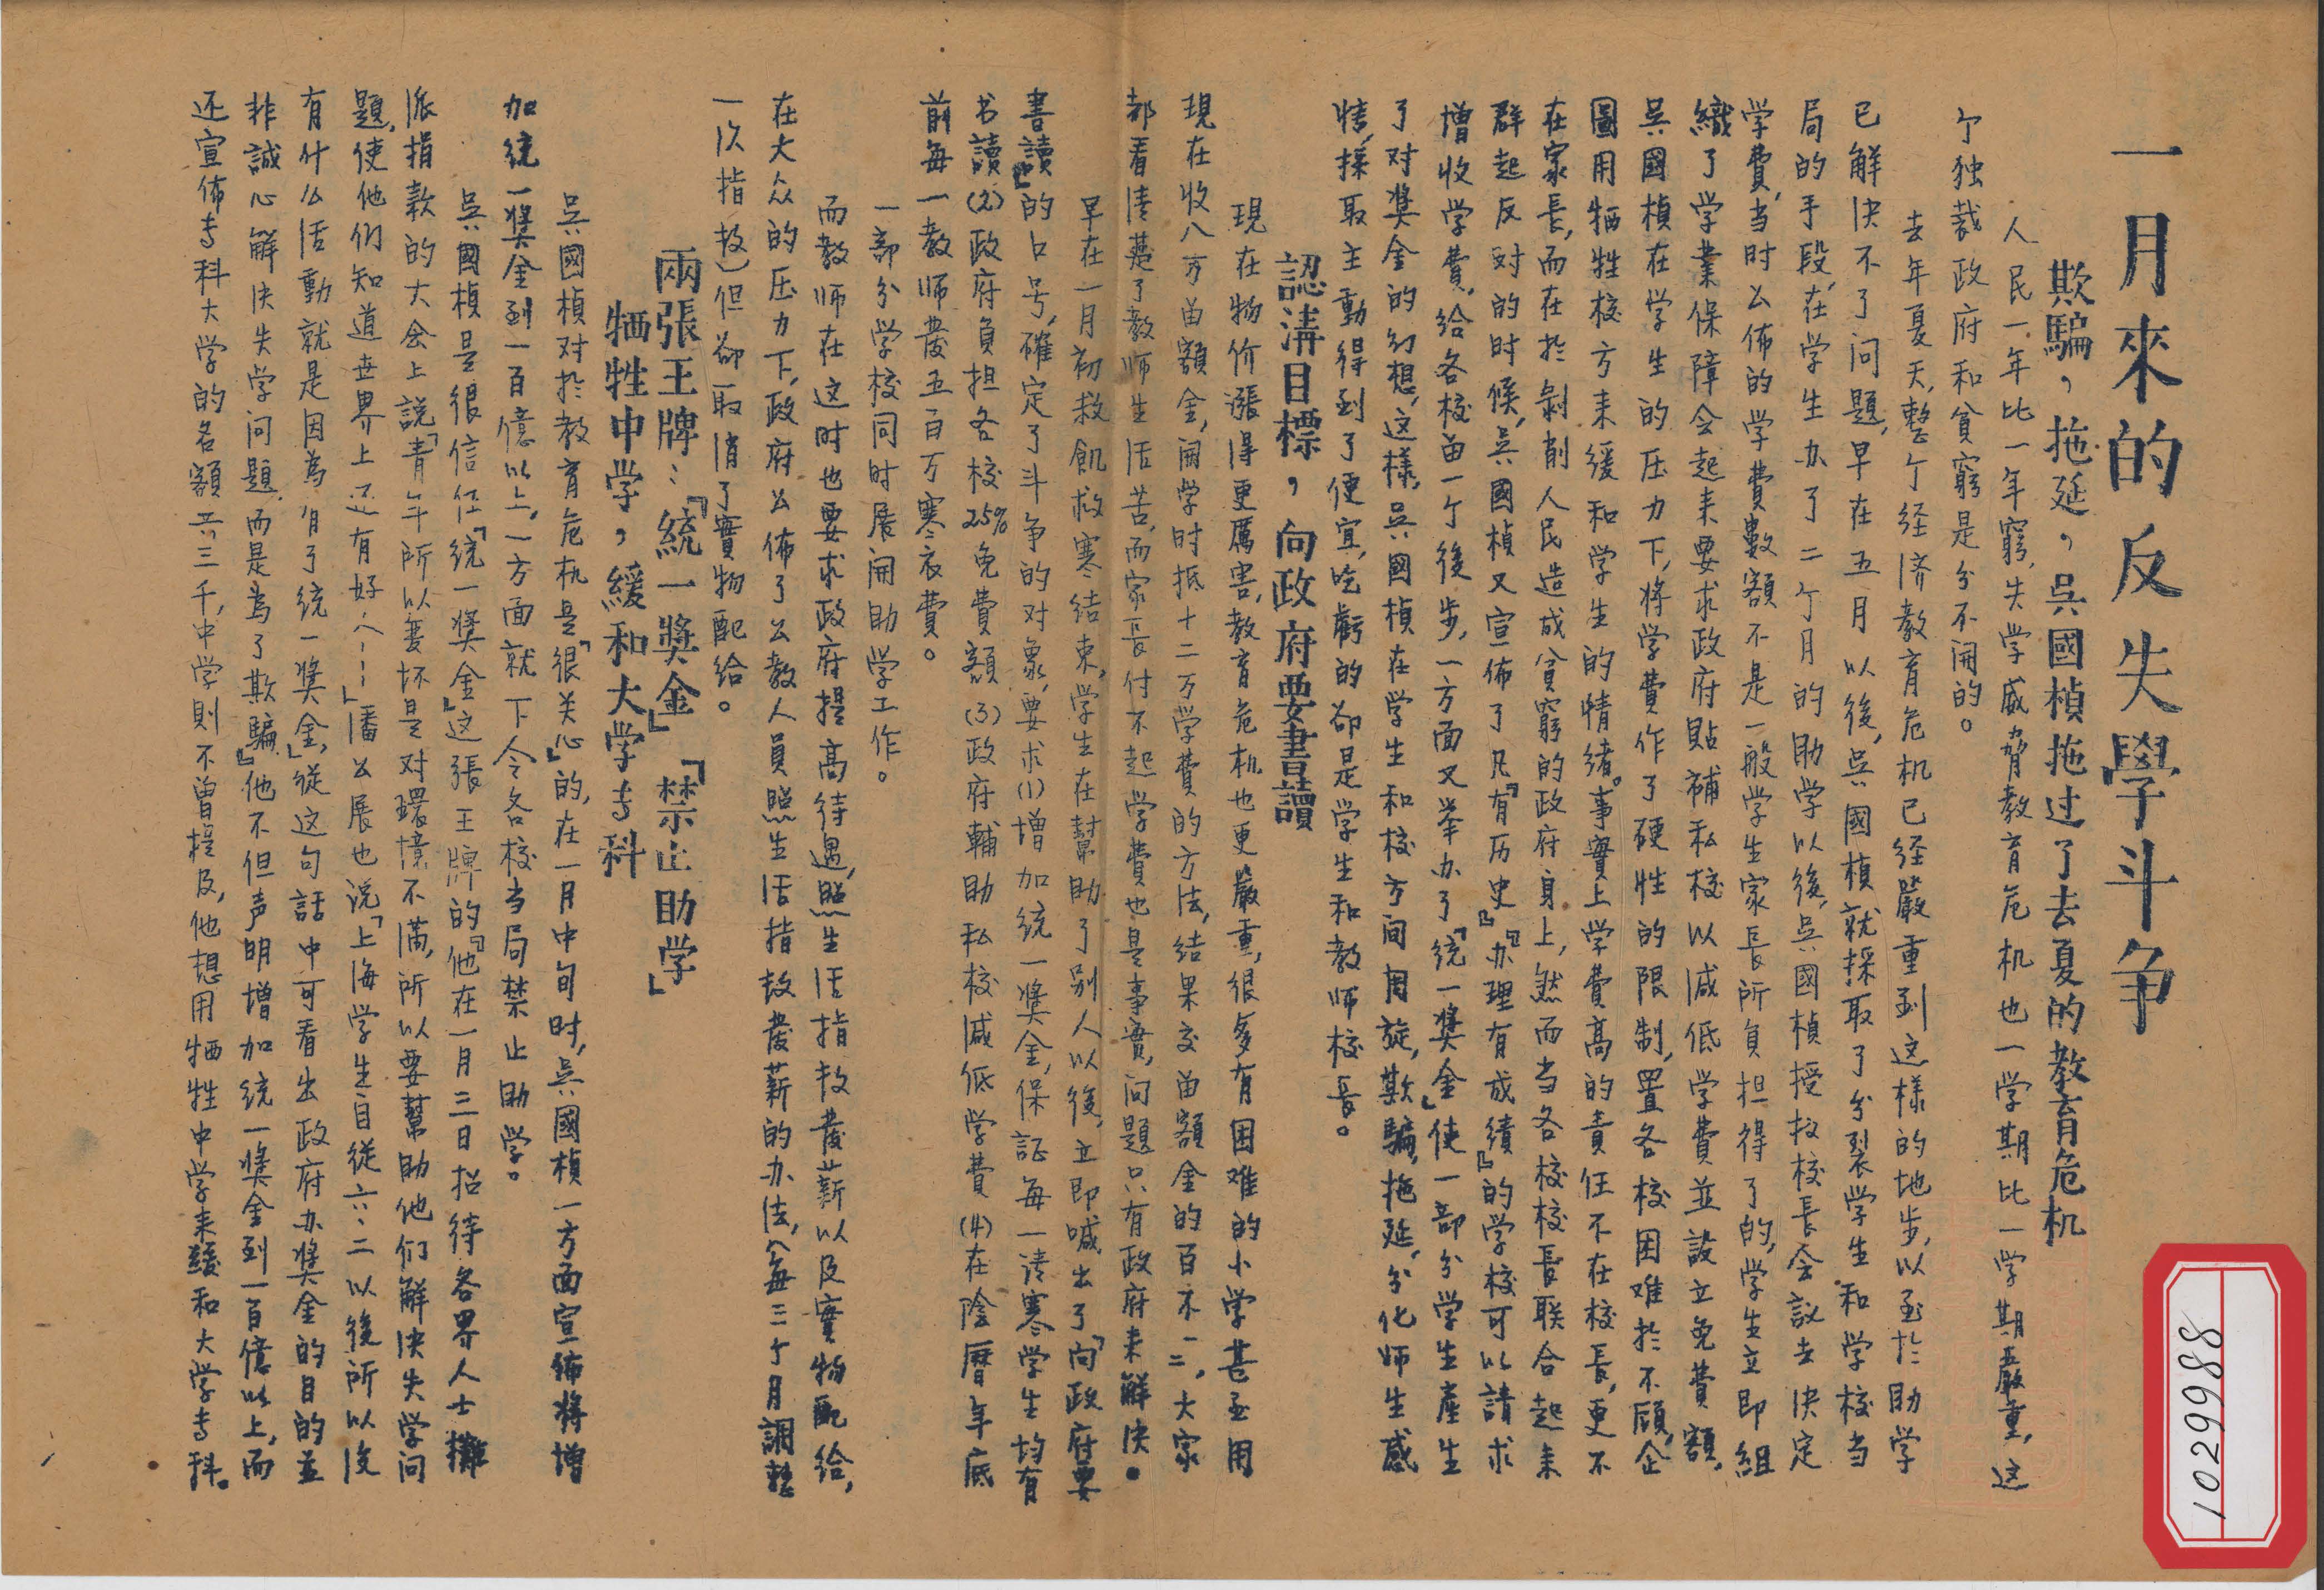 一月來的反失學斗争
欺騙，拖延，吳國楨拖过了去夏的教育危机
人民一年比一年窮，失学威脅教育危机也一学期比一学期嚴重，这
个独裁政府和貧窮是分不開的。
去年夏天，整个经济教育危机已经嚴重到这樣的地步，以至於助学
已解决不了问題，早在五月以後，吳國楨就採取了分裂学生和学校当
局的手段，在学生办了二个月的助学以後，吳國楨授权校長会議去决定
学費，当时公佈的学費數額不是一般学生家長所負担得了的，学生立即組
織了学業保障会起来要求政府貼補私校以减低学費並設立免費額，
吳國楨在学生的压力下，将学費作了硬性的限制，置各校困难於不顧，企
圖用牺牲校方来缓和学生的情緒。事實上学費高的責任不在校長，更不
在家長，而在於剝削人民造成貧窮的政府身上，然而当各校校長联合起来
群起反对的时候，吳國楨又宣佈了凡『有历史』『办理有成績』的学校可以請求
增收学費，给各校留一个後步，一方面又举办了『统一奬金』使一部分学生產生
了对奬金的幻想，这樣，吳國楨在学生和校方间周旋，欺騙，拖延，分化师生感
情，採取主動得到了便宜，吃虧的卻是学生和教师校長。
認清目標，向政府要書讀
現在物价漲得更厲害，教育危机也更嚴重，很多有困难的小学甚至用
現在收八万留額金，開学时抵十二万学費的方法，结果交留額金的百不一二，大家
都看清楚了教师生活苦，而家長付不起学費也是事實，问題只有政府来解决。
早在一月初救飢救寒结束，学生在幫助了别人以後，立即喊出了『向政府要
書讀』的口号，確定了斗争的对象，要求(1)增加统一奬金，保証每一清寒学生均有
书讀(2)政府負担各校25%免費額(3)政府輔助私校减低学費(4)在陰曆年底
前每一教师發五百万寒衣費。
一部分学校同时展開助学工作。
而教师在这时也要求政府提高待遇，照生活指数發薪以及實物配给，
在大众的压力下，政府公佈了公教人員照生活指数發薪的办法，（每三个月調整
一次指数）但卻取消了實物配给。
兩張王牌：『統一獎金』『禁止助学』
牺牲中学，緩和大学专科
吳國楨对於教育危机是『很关心』的，在一月中旬时，吳國楨一方面宣佈将增
加统一奬金到一百億以上，一方面就下令各校当局禁止助学。
吳國楨是很信任『统一奬金』这張王牌的『他在一月三日招待各界人士攤
派捐款的大会上說『青年所以变坏是对環境不滿，所以要幫助他们解决失学问
題，使他们知道世界上还有好人……』潘公展也说『上海学生自從六·二以後所以沒
有什么活動就是因為有了统一奬金』，從这句話中可看出政府办奬金的目的並
非誠心解决失学问題，而是為了欺騙』他不但声明增加统一奬金到一百億以上，而
还宣佈专科大学的名額共三千，中学則不曾提及，他想用牺牲中学来緩和大学专科。
1029988